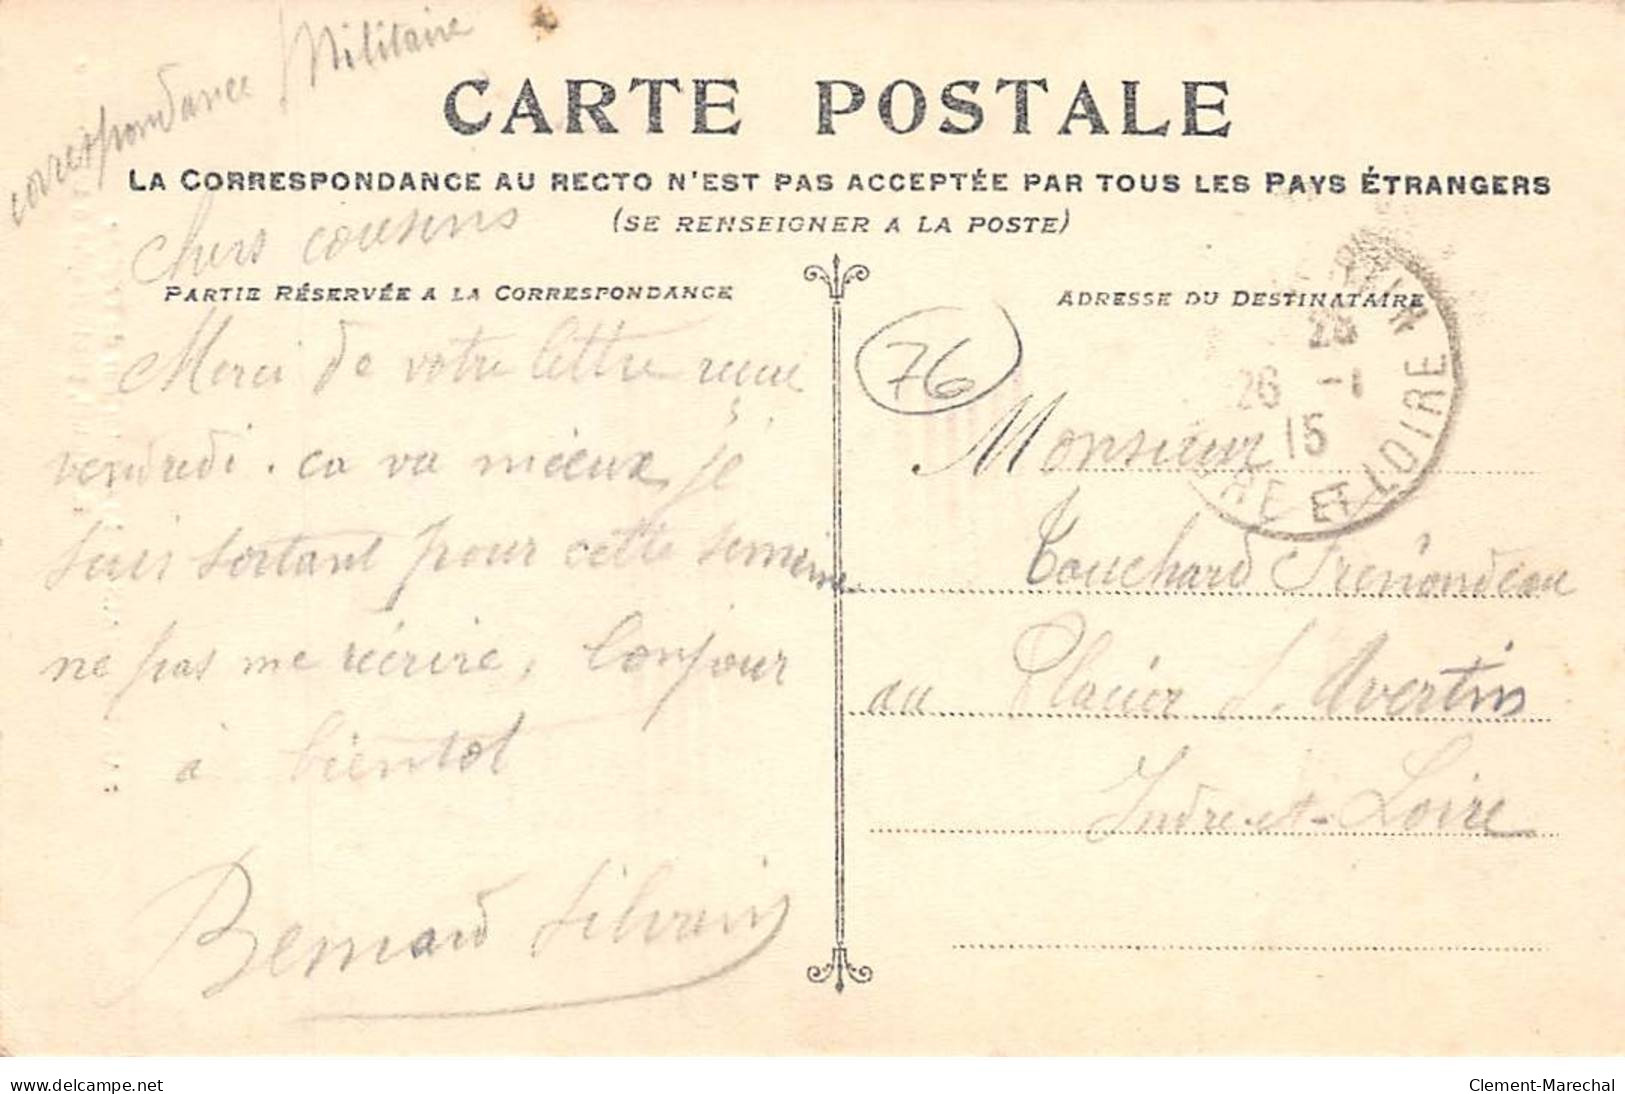 correspondance Militaire
CARTE POSTALE
LA CORRESPONDANCE AU RECTO N'EST PAS ACCEPTÉE PAR TOUS LES PAYS ÉTRANGERS
(SE RENSEIGNER A LA POSTE)
chers cousins
PARTIE RÉSERVÉE A LA CORRESPONDANCE
Merci de votre lettre recue
vendredi. ca va mieux je
suis sortant pour cette semaine
ne pas me réécrire, bonjour
à bientot
Bernard Silvain
ADRESSE DU DESTINATAIRE
76
26 -1
15
ET LOIRE
Monsieur
Touchard
au Placier S. Avertin
Indre-et-Loire
www.delcampe.net
Clement-Marechal